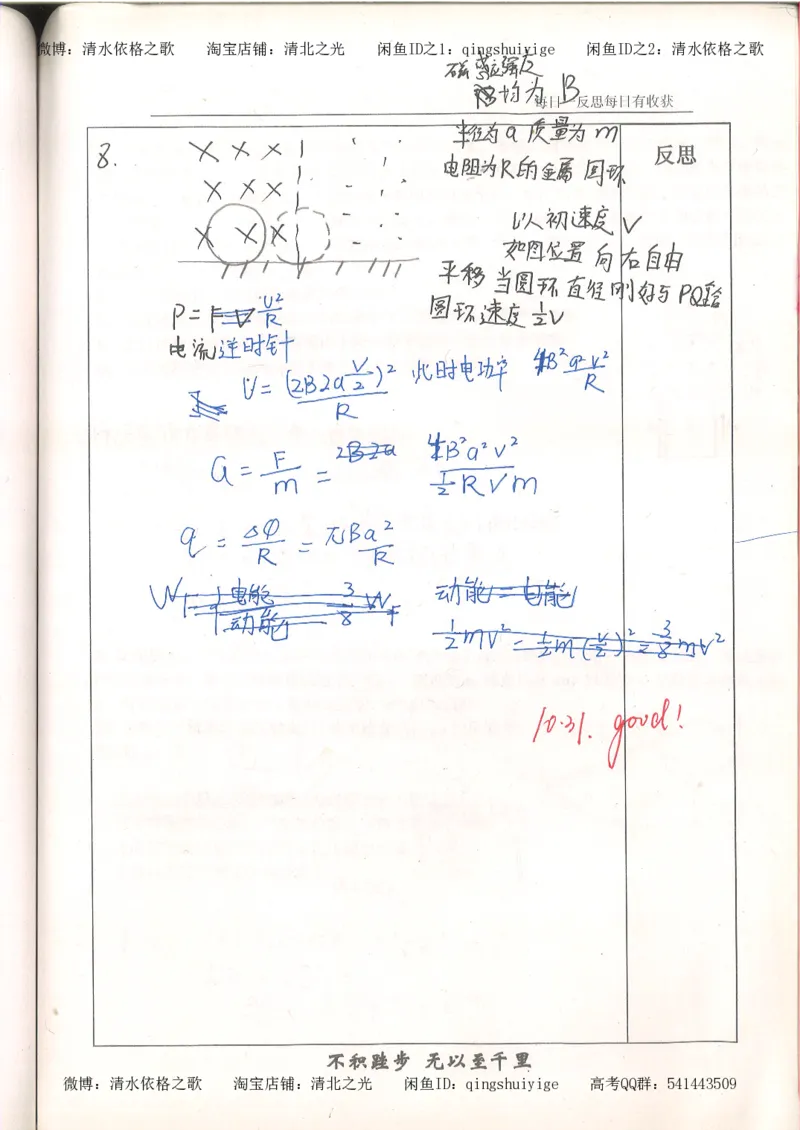 微博：清水依格之歌 淘宝店铺：清北之光 闲鱼ID之1：qingshuiyige 闲鱼ID之2：清水依格之歌
磁感应强度
均为 B
每日 反思每日有收获
8.
反思
半径为 a 质量为 m
电阻为R的金属 圆环
以初速度 V
如图位置 向右自由
平移 当圆环直径刚好与 PQ重合
圆环速度 1/2 V
P = U²/R
电流逆时针
U = (2B2a V/2)²/R 此时电功率 4B²a²v²/R
a = F/m = 4B²a²v²/(1/2 RVm)
q = ΔΦ/R = πBa²/R
动能 = 电能
1/2 mv² = 1/2 m(v/2)² = 3/8 mv²
10.31. good!
不积跬步 无以至千里
微博：清水依格之歌 淘宝店铺：清北之光 闲鱼ID：qingshuiyige 高考QQ群：541443509